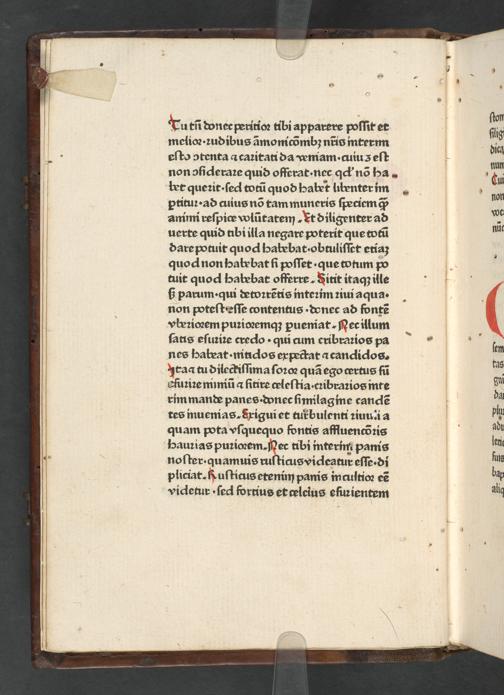 Tu tñ donec peritior tibi apparere possit et
melior · rudibus āmonicōnibꝫ nr̄is interim
esto 9tenta ⁊ caritati da veniam · cuiuꝫ est
non 9siderare quid offerat · nec qd' nō ha
bet querit · sed totū quod habet libenter im
ꝑtitur · ad cuius nō tam muneris speciem ꝙ̄
animi respice volūtatem . Et diligenter ad
uerte quid tibi illa negare poterit que totū
dare potuit quod habebat · obtulisset etiaꝫ
quod non habebat si posset · que totum po
tuit quod habebat offerre . Sitit itaqꝫ ille
ꝙ̄ parum · qui detorrētis interim riui aqua ·
non potest esse contentus · donec ad fontē
vberiorem purioremqꝫ ꝑueniat . Nec illum
satis esurire credo · qui cum cribrarios pa
nes habeat · nitidos expectat ⁊ candidos .
Ita ⁊ tu dilectissima soror quā ego certus sū
esurire nimiū ⁊ sitire celestia · cribrarios inte
rim mande panes · donec similagine candē
tes inuenias . Exigui et turbulenti riuuli a
quam pota vsquequo fontis affluencōris
haurias puriorem . Nec tibi interim panis
noster · quamuis rusticus videatur esse · di
pliciat . Rusticus etenim panis incultior eē
videtur · sed fortius et celcius esurientem
stom
silig
dica
Cui
non
voc
nūc
sem
tas
guā
dar
plur
adu
letic
suis
bap
aliq